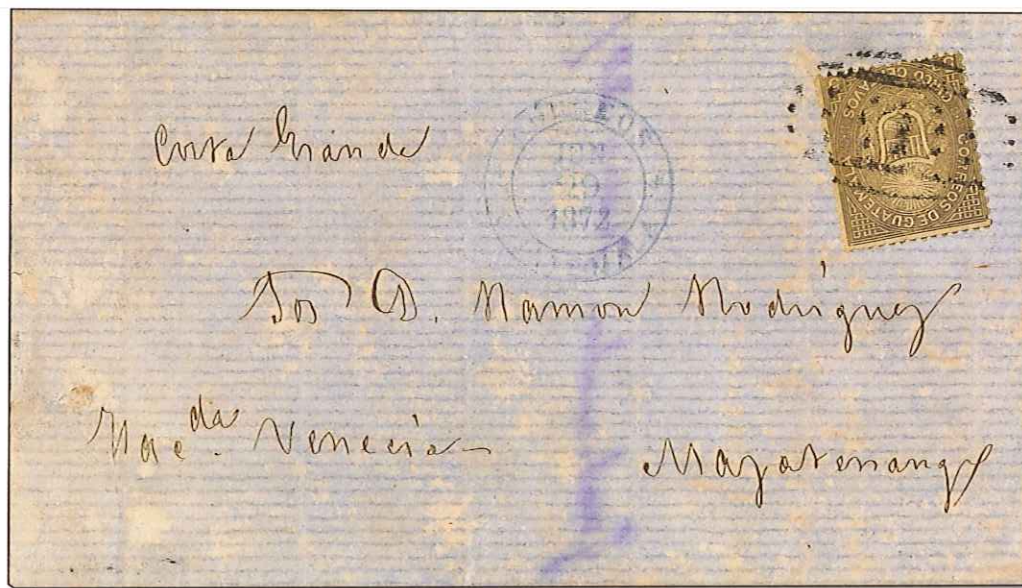 Costa Grande
1872
CORREOS DE GUATEMALA
CINCO CENTAVOS
Sor D. Ramon Rodríguez
Hacda. Venecia
Mazatenango